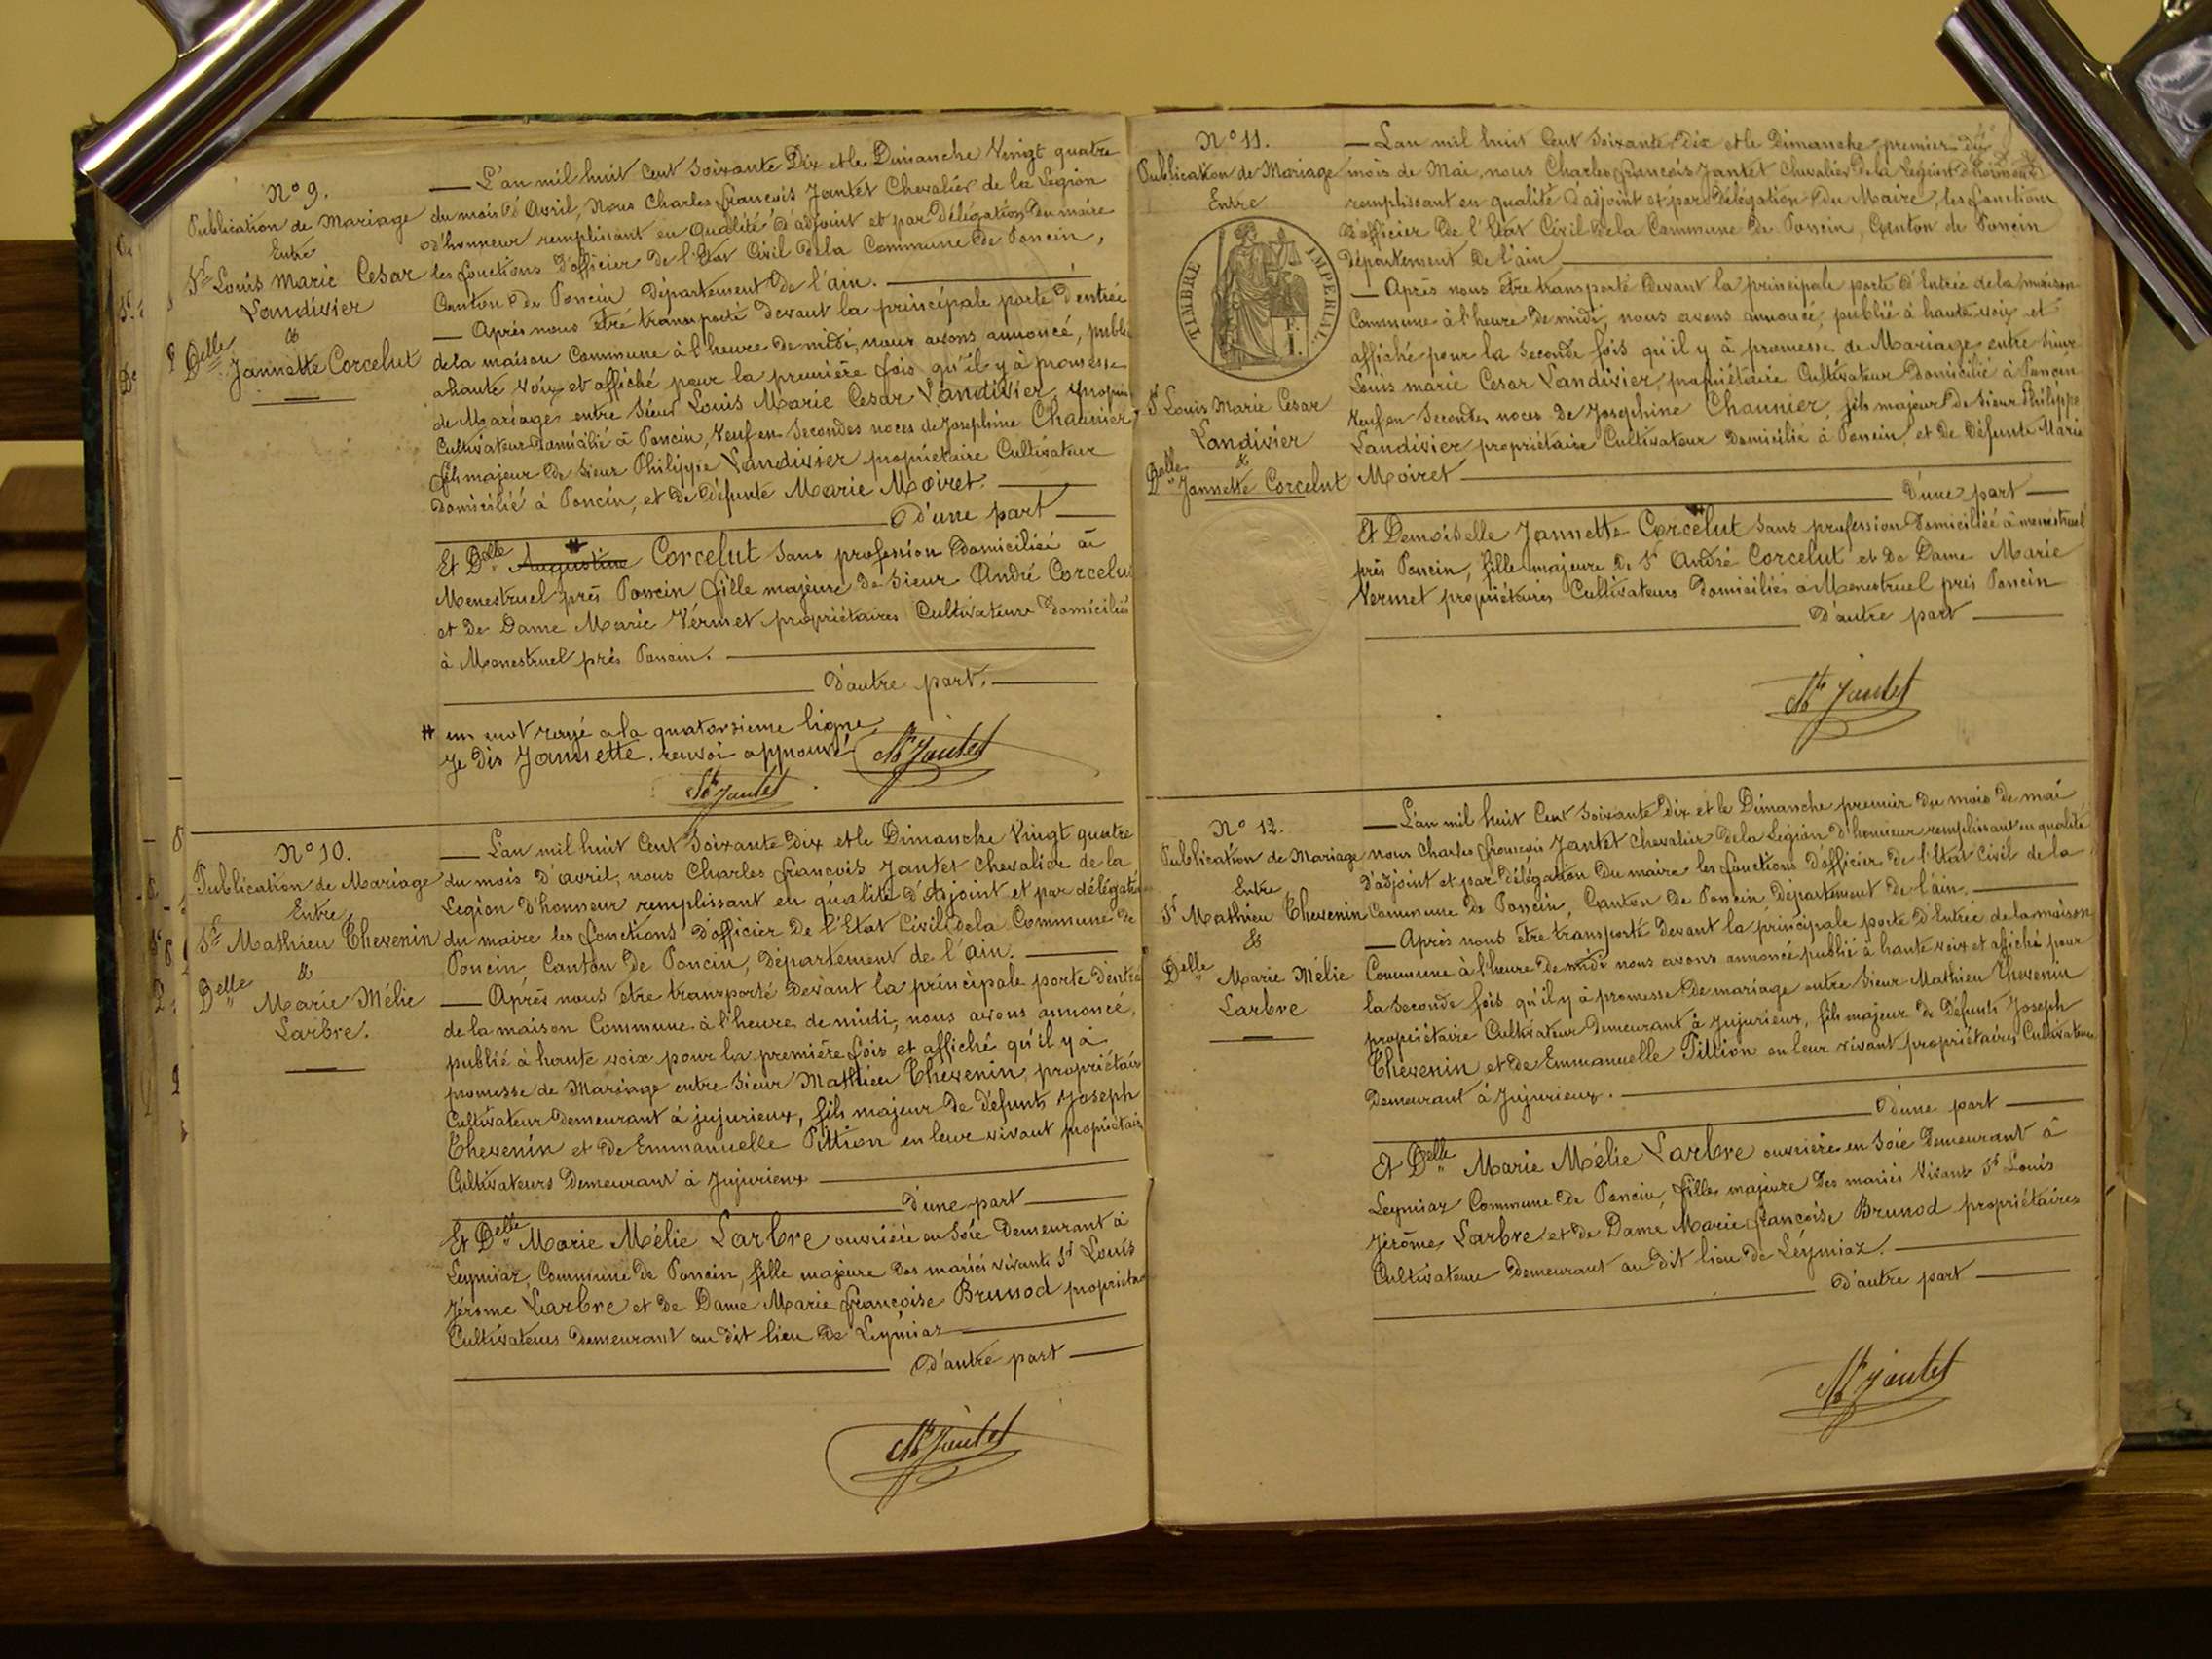 N° 9.
Publication de Mariage
Entre
Sr Louis Marie Cesar
Landivier
&
Delle Jannette Corcelut
— L'an mil huit Cent Soixante Dix et le Dimanche Vingt quatre
du mois d'Avril, Nous Charles françois Jantet Chevalier de la Légion
d'honneur remplissant en Qualité d'adjoint et par Délégation du maire
les fonctions d'officier de l'Etat Civil de la Commune de Poncin,
Canton de Poncin Département de l'ain.
— Après nous être transporté devant la principale porte d'entrée
de la maison Commune à l'heure de midi, nous avons annoncé, publié
à haute voix et affiché pour la première fois qu'il y à promesse
de Mariage entre Sieur Louis Marie Cesar Landivier,
Cultivateur Domicilié à Poncin, Veuf en Secondes noces de Josephine Chaunier,
fils majeur de Sieur Philippe Landivier propriétaire Cultivateur
Domicilié à Poncin, et de défunte Marie Moiret.
D'une part
Et Delle Augustine # Corcelut Sans profession Domiciliée à
Menestruel près Poncin fille majeure de Sieur André Corcelut
et de Dame Marie Vermet propriétaires Cultivateurs domiciliés
à Menestruel près Poncin.
D'autre part.
# un mot rayé a la quatorsieme ligne
Je dis Jannette. renvoi approuvé
Ch Jantet
Ch Jantet
N° 10.
Publication de Mariage
Entre
Sr Mathieu Thevenin
&
Delle Marie Mélie
Larbre.
— L'an mil huit Cent Soixante Dix et le Dimanche Vingt quatre
du mois d'avril, nous Charles francois Jantet Chevalier de la
Légion d'honneur remplissant en qualité d'Adjoint et par délégation
du maire les fonctions d'officier de l'Etat Civil de la Commune de
Poncin, Canton de Poncin, Département de l'Ain.
— Après nous être transporté devant la principale porte d'entrée
de la maison Commune à l'heure de midi, nous avons annoncé,
publié à haute voix pour la première fois et affiché qu'il y à
promesse de Mariage entre Sieur Mathieu Thevenin, propriétaire
Cultivateur demeurant à jujurieux, fils majeur de défunts Joseph
Thevenin et de Emmanuelle Pittion en leur vivant propriétaires
Cultivateurs Demeurant à Jujurieux
d'une part
Et Delle Marie Mélie Larbre ouvrière en Soie Demeurant à
Leymiaz, Commune de Poncin, fille majeure des mariés vivants Sr Louis
Jérome Larbre et de Dame Marie françoise Brunod propriétaires
Cultivateurs Demeurant au dit lieu de Leymiaz
D'autre part
Ch Jantet
N° 11.
Publication de Mariage
Entre
TIMBRE IMPERIAL
Sr Louis Marie Cesar
Landivier
&
Delle Jannette Corcelut
— L'an mil huit Cent Soixante Dix et le Dimanche premier du
mois de Mai, nous Charles françois Jantet Chevalier de la Légion d'honneur
remplissant en qualité d'adjoint et par délégation du Maire, les fonctions
d'officier de l'Etat Civil de la Commune de Poncin, Canton de Poncin
Département de l'ain
— Après nous être transporté devant la principale porte d'Entrée de la maison
Commune à l'heure de midi, nous avons annoncé, publié à haute voix et
affiché pour la seconde fois qu'il y à promesse de Mariage entre Sieur
Louis marie Cesar Landivier, propriétaire Cultivateur Domicilié à Poncin
Veuf en Secondes noces de Josephine Chaunier, fils majeur de Sieur Philippe
Landivier propriétaire Cultivateur Domicilié à Poncin, et de Défunte Marie
Moiret
D'une part
Et Demoiselle Jannette Corcelut Sans profession Domiciliée à menestruel
près Poncin, fille majeure de Sr André Corcelut et de Dame Marie
Vermet propriétaires Cultivateurs Domiciliés à Menestruel près Poncin
D'autre part
Ch Jantet
N° 12.
Publication de Mariage
Entre
Sr Mathieu Thevenin
&
Delle Marie Mélie
Larbre
— L'an mil huit Cent Soixante Dix et le Dimanche premier du mois de mai
nous Charles francois Jantet Chevalier de la Légion d'honneur remplissant en qualité
d'adjoint et par délégation du maire les fonctions d'officier de l'Etat Civil de la
Commune de Poncin, Canton de Poncin Département de l'ain.
— Après nous être transporté devant la principale porte d'Entrée de la maison
Commune à l'heure de midi nous avons annoncé publié à haute voix et affiché pour
la seconde fois qu'il y à promesse de mariage entre Sieur Mathieu Thevenin
propriétaire Cultivateur demeurant à Jujurieux, fils majeur de Défunts Joseph
Thevenin et de Emmanuelle Pittion en leur vivant propriétaires Cultivateurs
Demeurant à Jujurieux.
d'une part
Et Delle Marie Mélie Larbre ouvrière en Soie Demeurant à
Leymiaz Commune de Poncin, fille majeure des mariés Vivants Sr Louis
Jérôme Larbre et de Dame Marie françoise Brunod propriétaires
Cultivateurs Demeurant au dit lieu de Léymiaz.
D'autre part
Ch Jantet